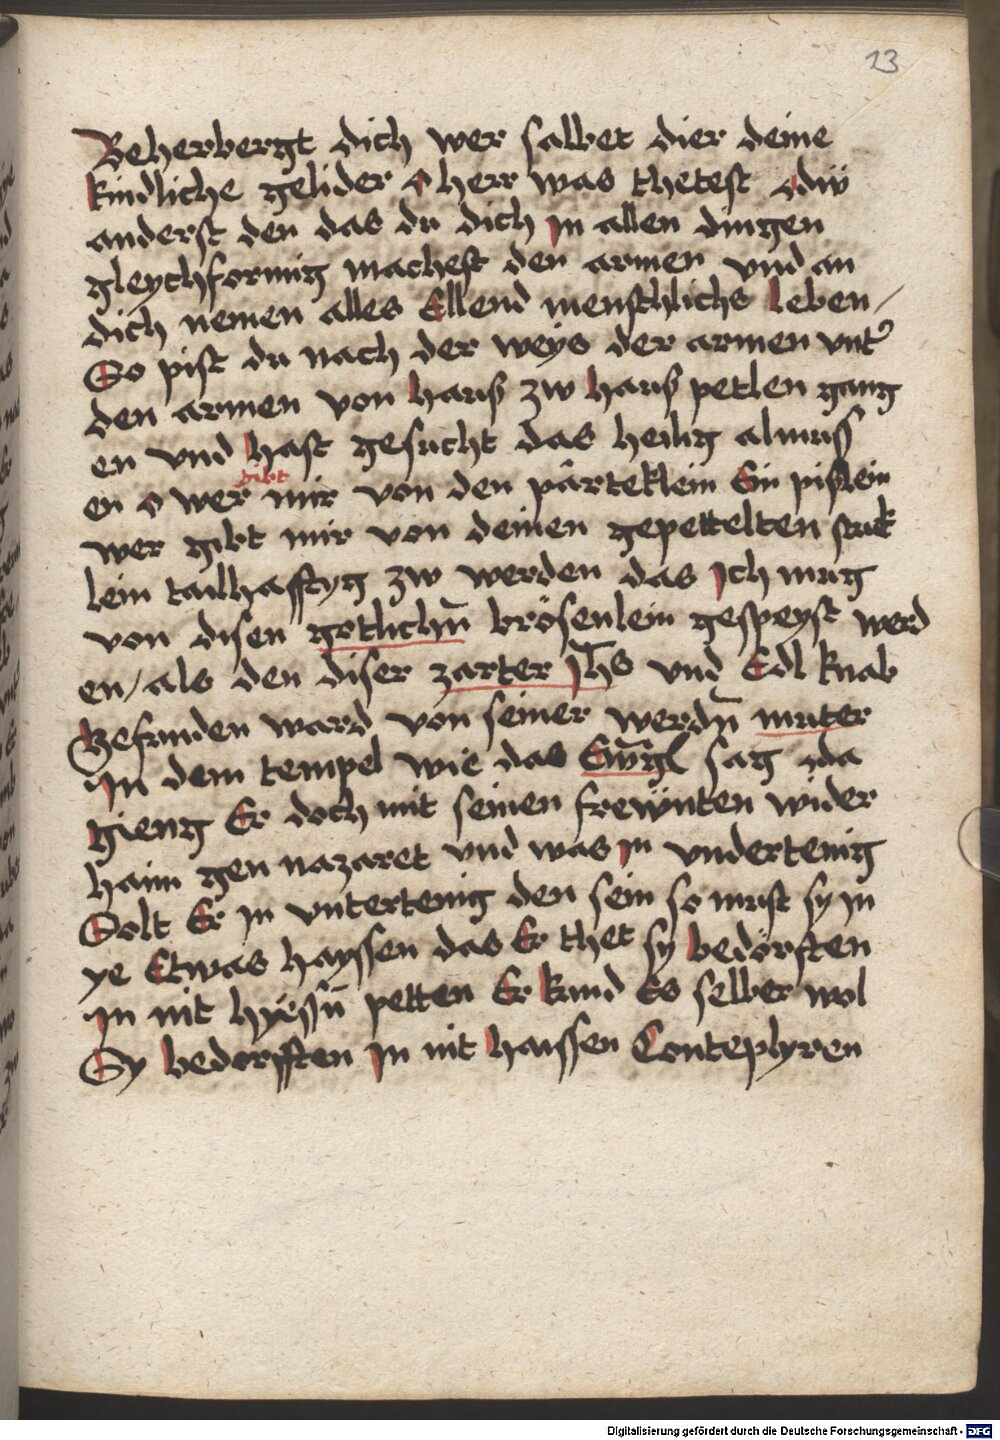 23
Beherbergt dich wer salbet dier deine
kindliche gelider o herr was thetest du
anderst den das du dich jn allen dingen
gleychformig machest den armen vnd an
dich nemen alles Ellend menschlichs leben /
So pist du nach der weys der armen vnt᷑
den armen von hauß zw hauß petlen gang
en vnd hast gesucht das heilig almuss
gibt
en o wer mir von den pârteklein Ein pißlein
wer gibt mir von deinen gepettelten stuk
lein tailhafftyg zw werden das jch mug
von disen gotlichn̄ brösenlein gespeyst werd
en / als den diser zarter jhs̄ vnd Edl knab
Gefunden ward von seiner werdn̄ muter
jn dem tempel wie das Ew̄gl sag da
gieng Er doch mit seinen frewnten wider
haim gen nazaret vnd was jn vndertenig
Solt Er jn vntertenig den sein so must sy jn
ye Etwas hayssen das Er thet sy bedörften
jn nit hyessn̄ petten Er kund Es selber wol
Sy bedorfften jn nit haissen Conteplyren
Digitalisierung gefördert durch die Deutsche Forschungsgemeinschaft - DFG